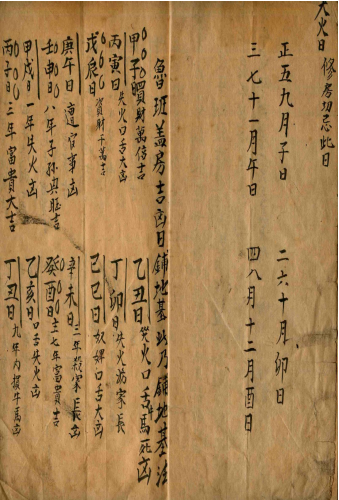 天火日 修房切忌此日
正五九月子日 二六十月卯日
三七十一月午日 四八月十二月酉日
魯班盖房吉凶日鋪地基以乃鋪地基法
甲子日買財萬倍吉 乙丑日失火口舌馬死凶
丙寅日失火口舌大凶 丁卯日失火 家長
戊辰日資財千萬吉 己巳日奴婢口舌大凶
庚午日遭官事凶 辛未日三年殺家長凶
壬申日八年子孫興旺吉 癸酉日主七年富貴吉
甲戌日一年失火凶 乙亥日口舌失火凶
丙子日三年富貴大吉 丁丑日九年内損牛馬凶